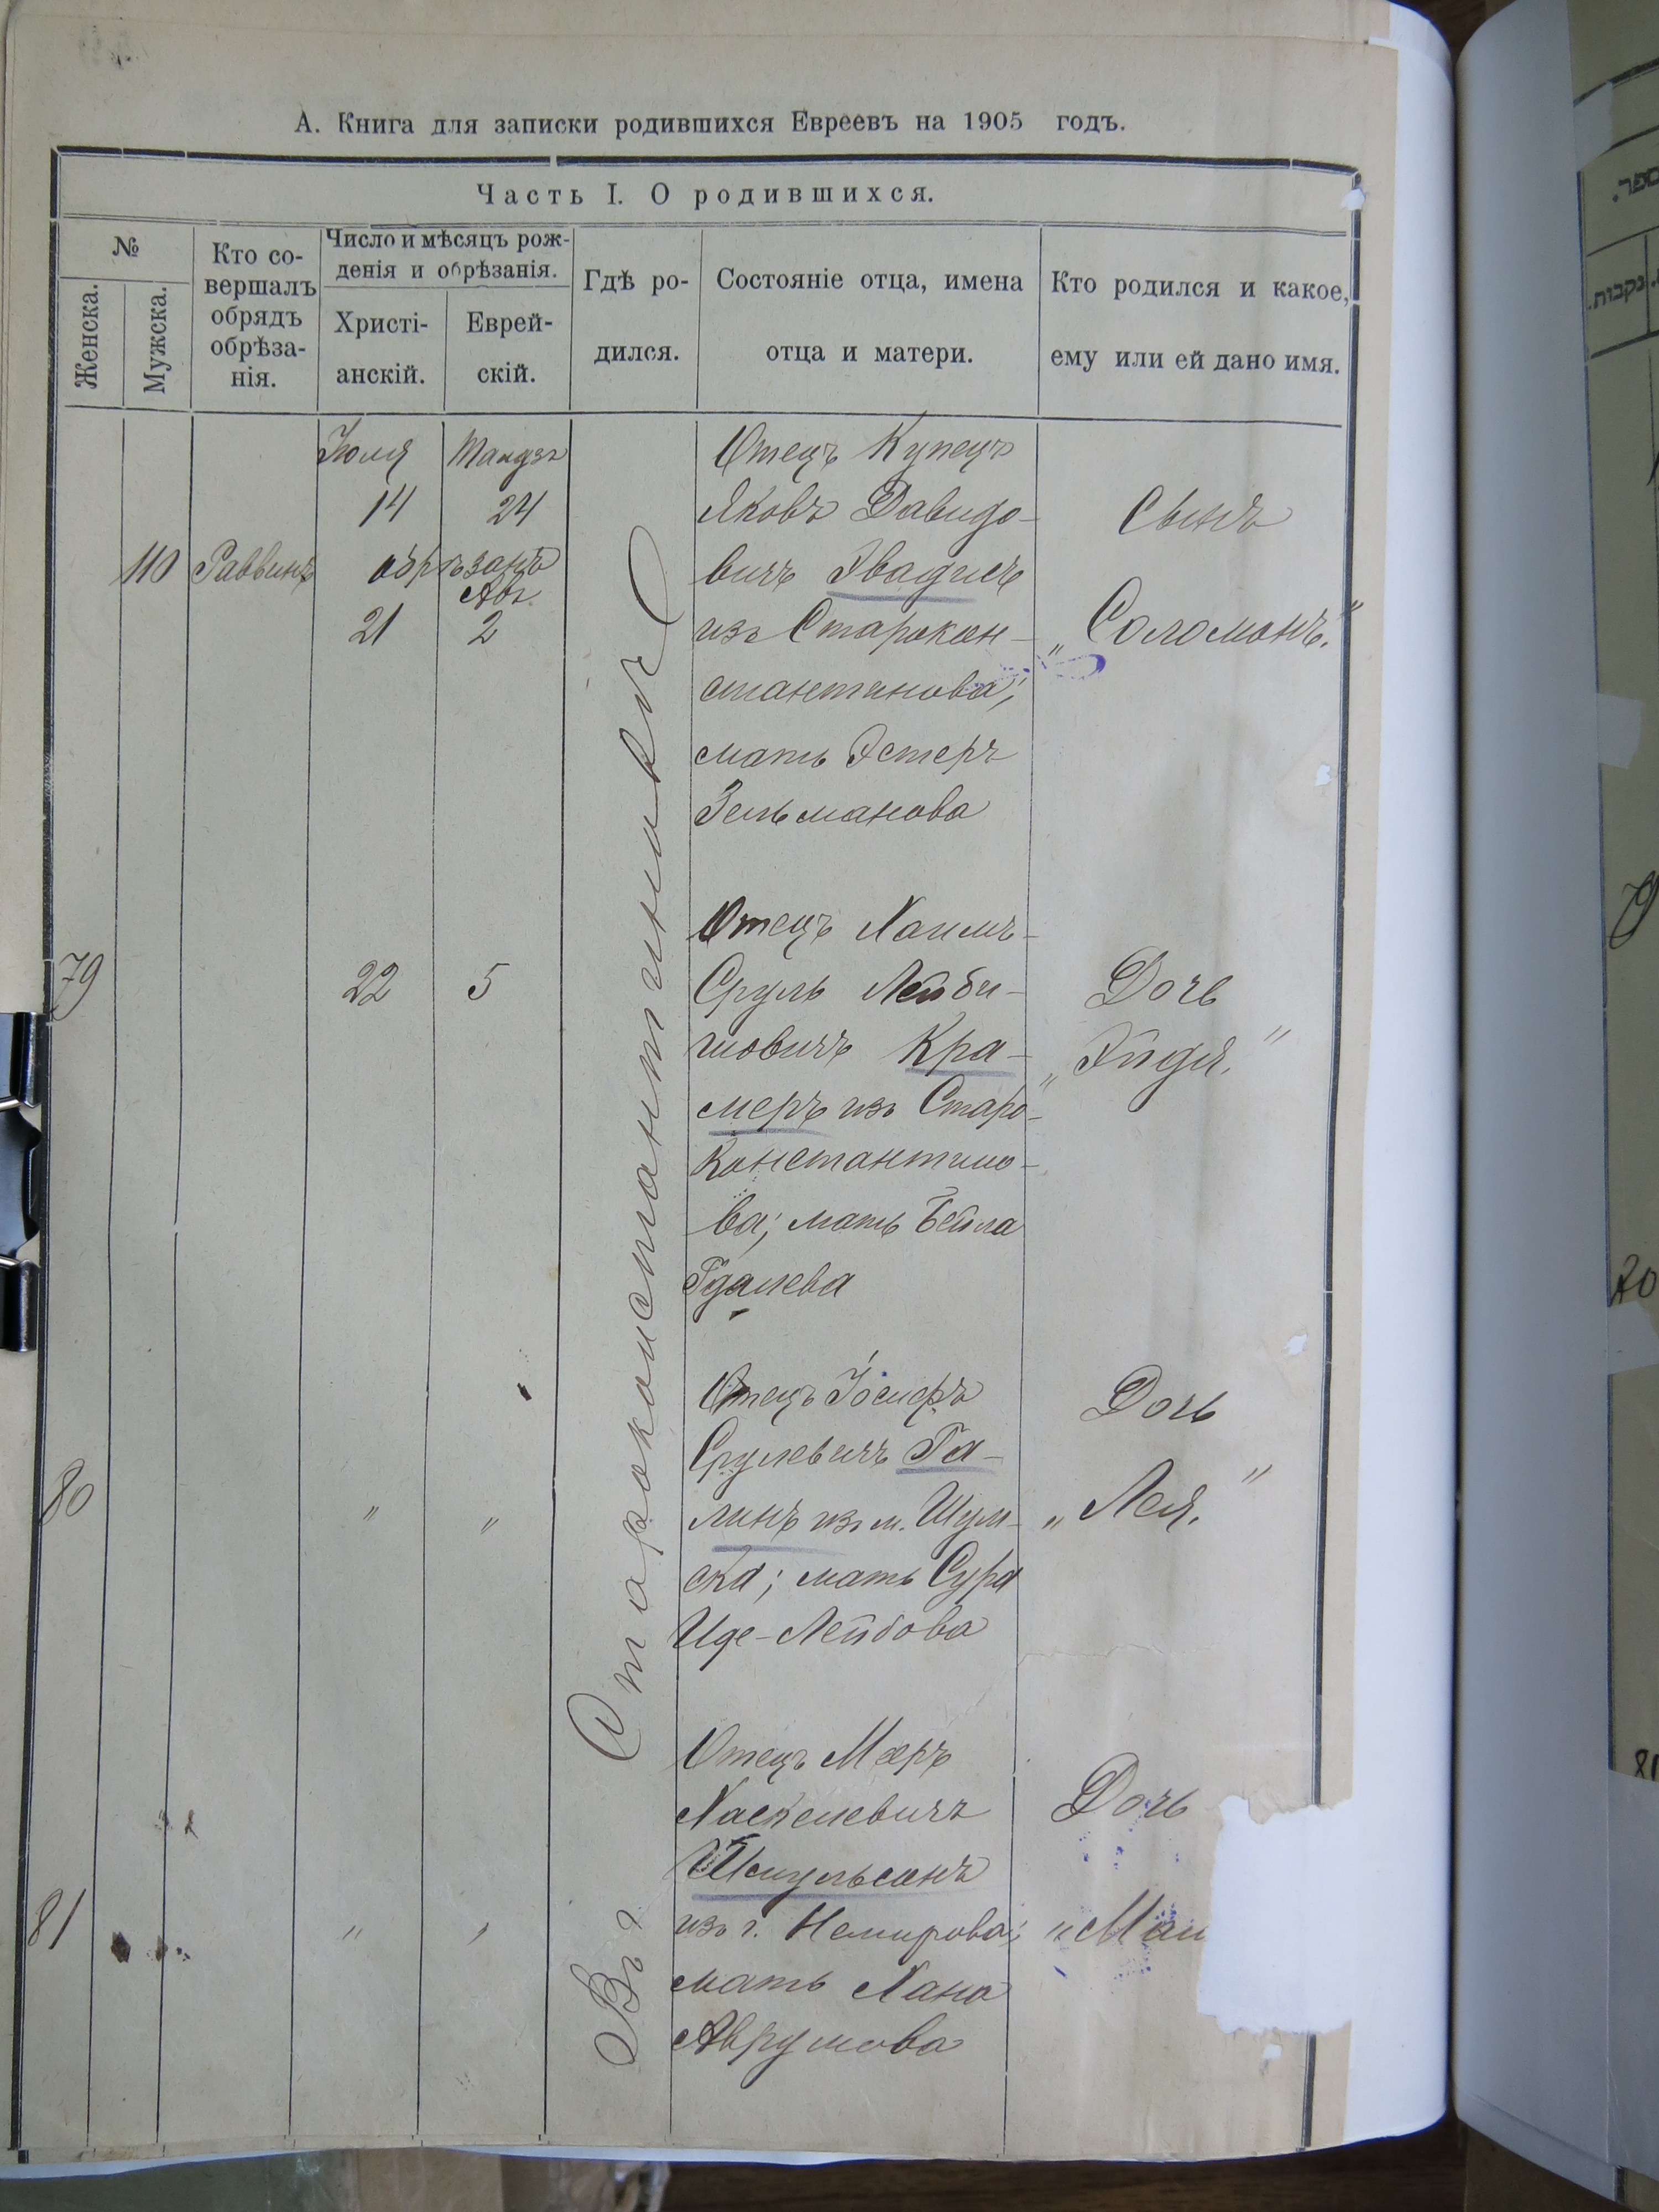 А. Книга для записки родившихся Евреевъ на 1905 годъ.
Часть I. О родившихся.
№
Женска.
Мужска.
Кто со-
вершалъ
обрядъ
обрѣза-
нія.
Число и мѣсяцъ рож-
денія и обрѣзанія.
Христі-
анскій.
Еврей-
скій.
Гдѣ ро-
дился.
Состояніе отца, имена
отца и матери.
Кто родился и какое,
ему или ей дано имя.
Въ г. Староконстантиновѣ
110
Раввинъ
Іюля
14
Тамузъ
24
обрѣзанъ
21
Авъ
2
Отецъ Купецъ
Яковъ Давидо-
вичъ Эвадисъ
изъ Старокон-
стантинова;
мать Эстеръ
Зельманова
Сынъ
„Соломонъ."
79
22
5
Отецъ Хаимъ-
Сруль Лейби-
шовичъ Кра-
меръ изъ Старо-
константино-
ва; мать Бейла
Гдалева
Дочь
„Эйдя."
80
"
"
Отецъ Іосифъ
Срулевичъ Га-
линъ из м. Шум-
ска; мать Сура
Иде-Лейбова
Дочь
„Лея."
81
"
"
Отецъ Меръ
Хаскелевичъ
Шмульсонъ
изъ г. Немирова;
мать Хана
Аврумова
Дочь
"Ма
ספר.
נקבות.
79
80
81